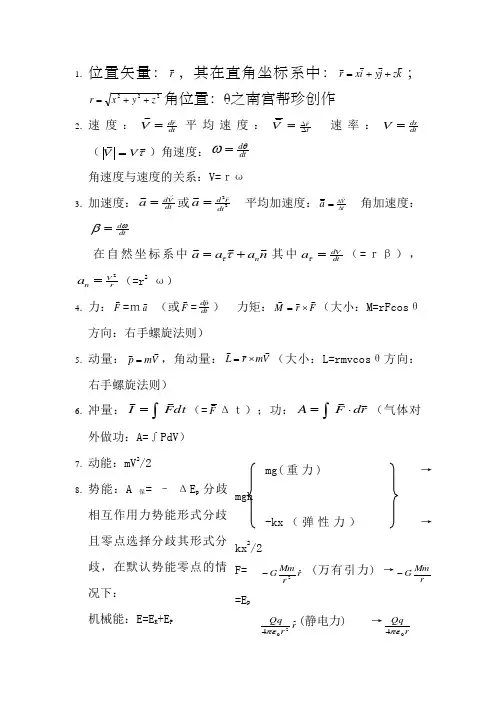 1. 位置矢量：r⃗，其在直角坐标系中：r⃗ = xi⃗ + yj⃗ + zk⃗；
r = √(x² + y² + z²) 角位置：θ之南宫帮珍创作
2. 速度：V⃗ = dr⃗/dt 平均速度：V⃗̄ = Δr⃗/Δt 速率：V = ds/dt
（|V⃗| = V r⃗）角速度：ω = dθ/dt
角速度与速度的关系：V=ｒω
3. 加速度：a⃗ = dV⃗/dt 或 a⃗ = d²r⃗/dt² 平均加速度：a⃗̄ = ΔV⃗/Δt 角加速度：
β = dω/dt
在自然坐标系中 a⃗ = a_τ τ⃗ + a_n n⃗ 其中 a_τ = dV/dt（=ｒβ），
a_n = V²/r（=r² ω）
4. 力：F⃗=ｍa⃗ （或F⃗ = dp⃗/dt） 力矩：M⃗ = r⃗ × F⃗（大小：M=rFcosθ
方向：右手螺旋法则）
5. 动量：p⃗ = mV⃗，角动量：L⃗ = r⃗ × mV⃗（大小：L=rmvcosθ方向：
右手螺旋法则）
6. 冲量：I⃗ = ∫ F⃗dt（=F⃗Δｔ）；功：A = ∫ F⃗ · dr⃗（气体对
外做功：A=∫PdV）
7. 动能：mV²/2
8. 势能：A保= – ΔEp 分歧
相互作用力势能形式分歧
且零点选择分歧其形式分
歧，在默认势能零点的情
况下：
机械能：E=EK+EP
mg(重力) →
mgh
-kx（弹性力） →
kx²/2
F= −G Mm/r² r̂ (万有引力) → −G Mm/r
=Ep
Qq/4πε₀r² r̂ (静电力) → Qq/4πε₀r